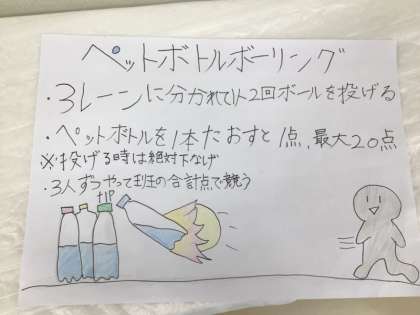 ペットボトルボーリング
・3レーンに分かれて1人2回ボールを投げる
・ペットボトルを1本たおすと1点、最大20点
※投げる時は絶対下なげ
・3人ずつやって班の合計点で競う